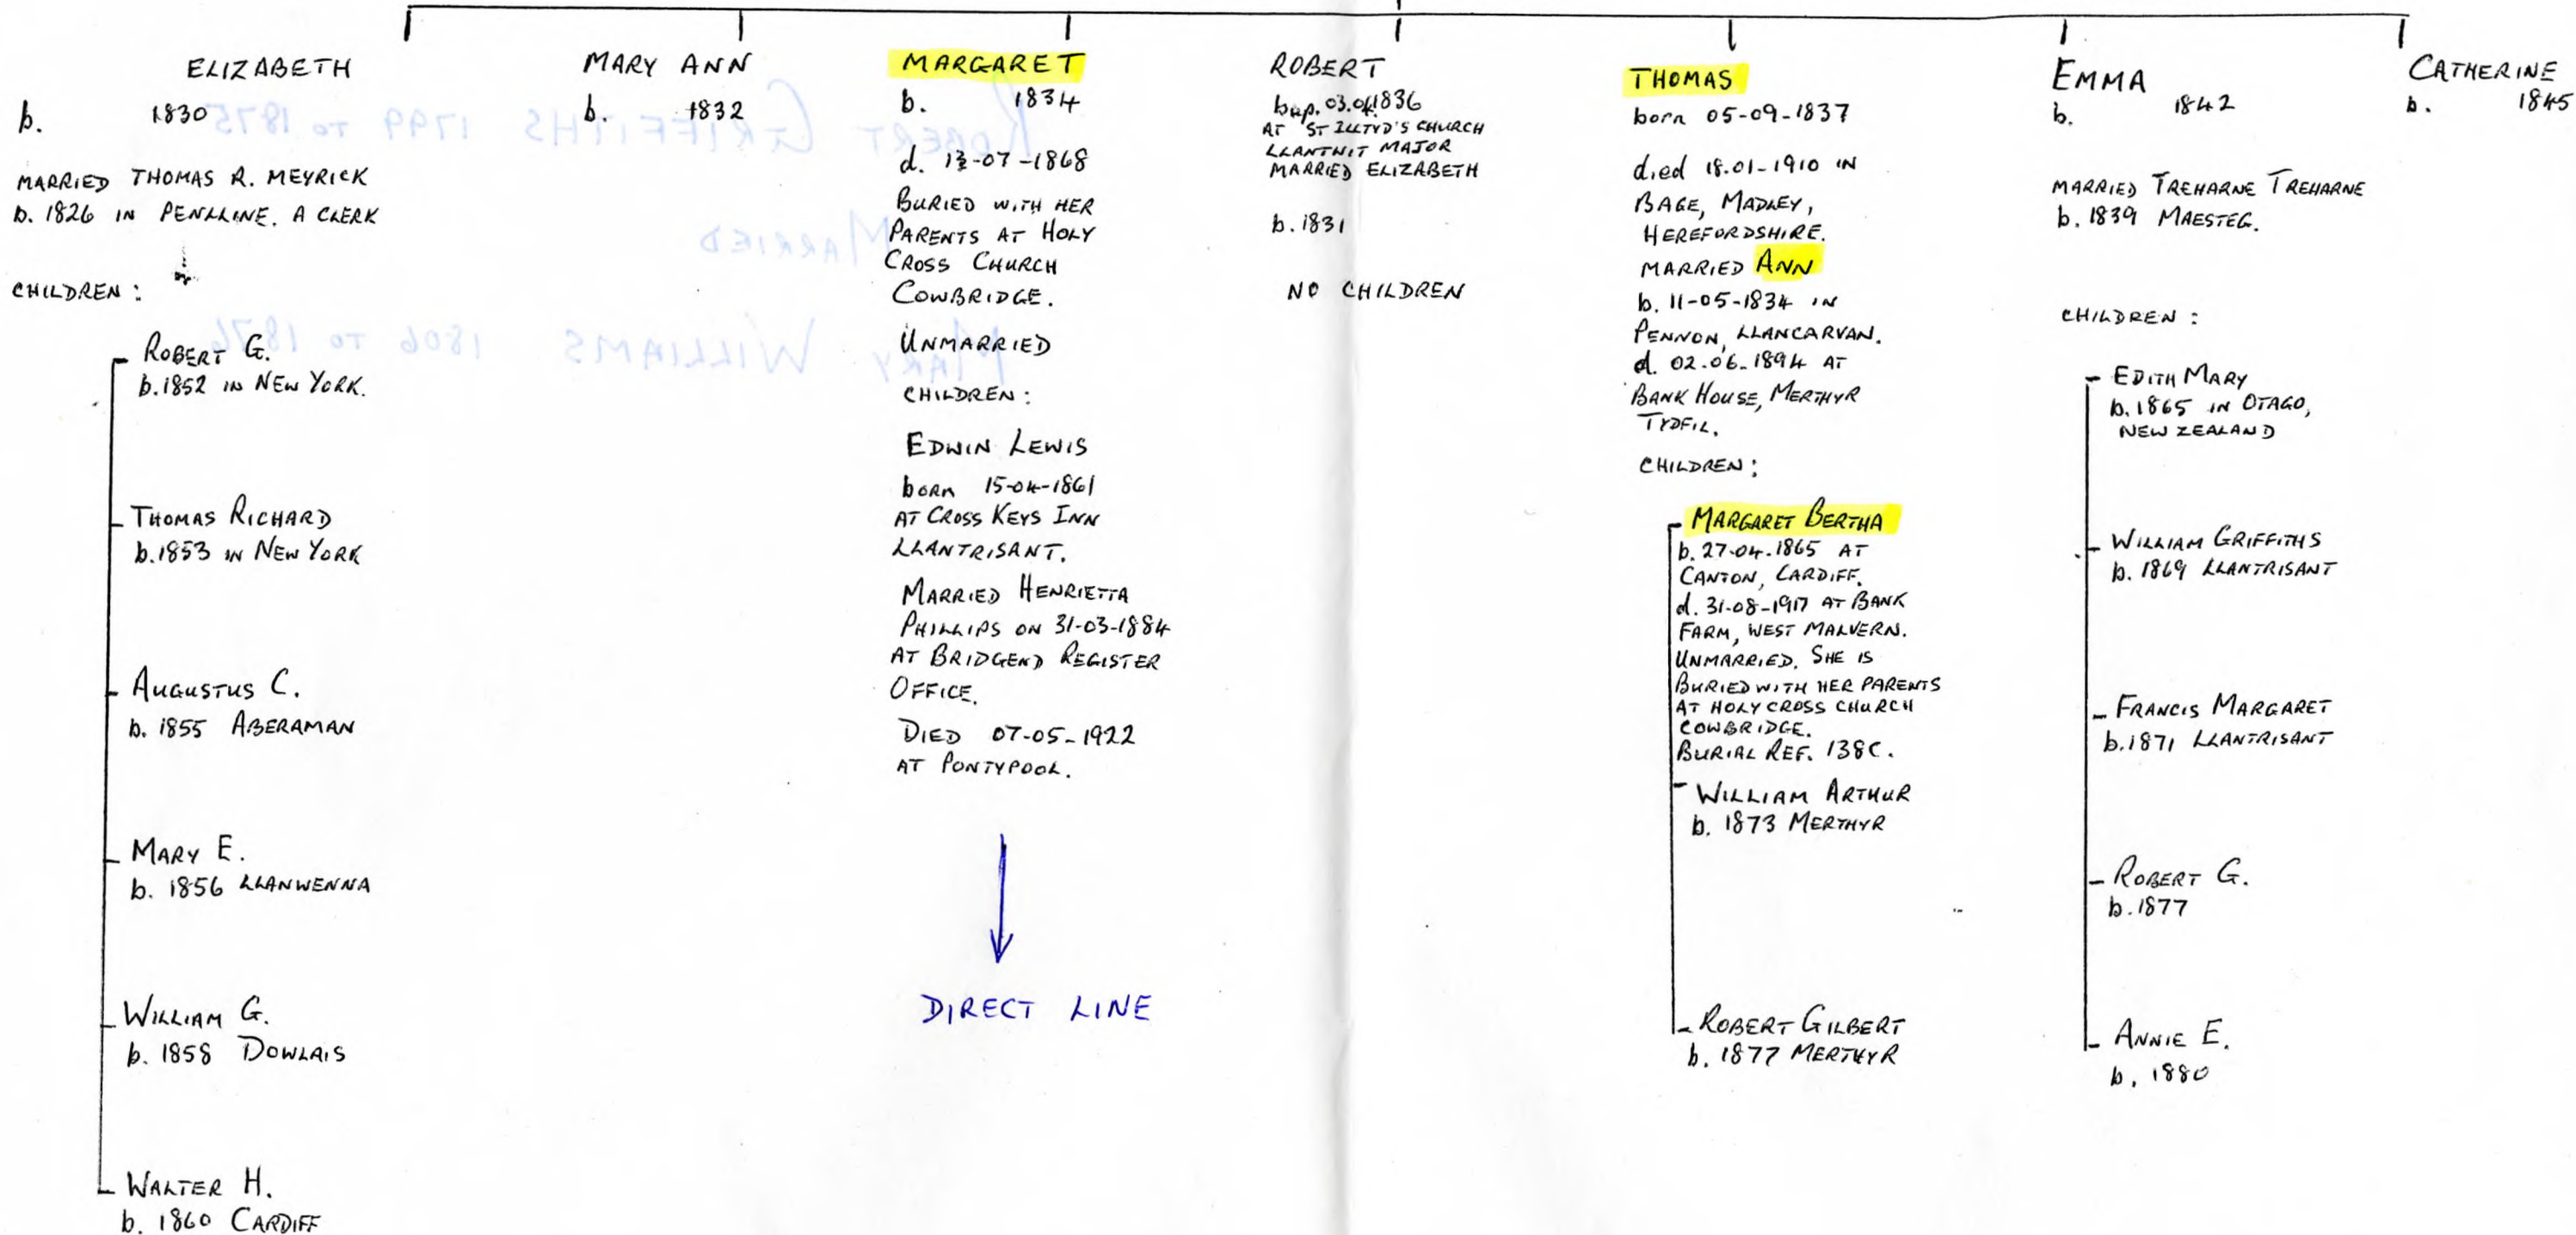 ELIZABETH
b. 1830
MARRIED THOMAS R. MEYRICK
b. 1826 IN PENLLINE. A CLERK
CHILDREN:
ROBERT G.
b. 1852 IN NEW YORK.
THOMAS RICHARD
b. 1853 IN NEW YORK
AUGUSTUS C.
b. 1855 ABERAMAN
MARY E.
b. 1856 LLANWENNA
WILLIAM G.
b. 1858 DOWLAIS
WALTER H.
b. 1860 CARDIFF
MARY ANN
b. 1832
MARGARET
b. 1834
d. 13-07-1868
BURIED WITH HER
PARENTS AT HOLY
CROSS CHURCH
COWBRIDGE.
UNMARRIED
CHILDREN:
EDWIN LEWIS
born 15-04-1861
AT CROSS KEYS INN
LLANTRISANT.
MARRIED HENRIETTA
PHILLIPS ON 31-03-1884
AT BRIDGEND REGISTER
OFFICE.
DIED 07-05-1922
AT PONTYPOOL.
DIRECT LINE
ROBERT
bap. 03.04.1836
AT ST ILLTYD'S CHURCH
LLANTWIT MAJOR
MARRIED ELIZABETH
b. 1831
NO CHILDREN
THOMAS
born 05-09-1837
died 18.01-1910 IN
BAGE, MADLEY,
HEREFORDSHIRE.
MARRIED ANN
b. 11-05-1834 IN
PENNON, LLANCARVAN.
d. 02.06.1894 AT
BANK HOUSE, MERTHYR
TYDFIL.
CHILDREN:
MARGARET BERTHA
b. 27.04.1865 AT
CANTON, CARDIFF.
d. 31-08-1917 AT BANK
FARM, WEST MALVERN.
UNMARRIED. SHE IS
BURIED WITH HER PARENTS
AT HOLY CROSS CHURCH
COWBRIDGE.
BURIAL REF. 138C.
WILLIAM ARTHUR
b. 1873 MERTHYR
ROBERT GILBERT
b. 1877 MERTHYR
EMMA
b. 1842
MARRIED TREHARNE TREHARNE
b. 1839 MAESTEG.
CHILDREN:
EDITH MARY
b. 1865 IN OTAGO,
NEW ZEALAND
WILLIAM GRIFFITHS
b. 1869 LLANTRISANT
FRANCIS MARGARET
b. 1871 LLANTRISANT
ROBERT G.
b. 1877
ANNIE E.
b. 1880
CATHERINE
b. 1845
ROBERT GRIFFITHS 1799 TO 1875
MARRIED
MARY WILLIAMS 1806 TO 1876